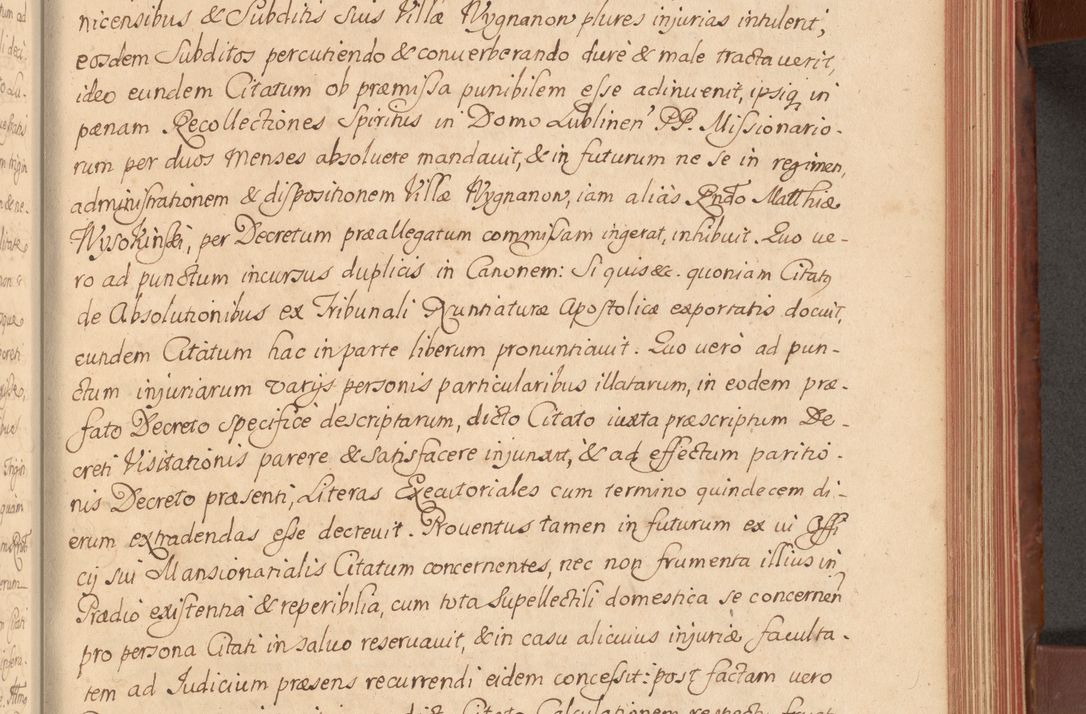 nicensibus & Subditis suis Villæ Wygnanow plures injurias intulerit,
eosdem Subditos percutiendo & converberando durè & male tractaverit,
ideo eundem Citatum ob præmissa punibilem esse adinvenit, ipsiq in
pænam Recollectiones Spiritus in Domo Lublinen PP. Missionario-
rum per duos Menses absolvere mandavit, & in futurum ne se in regimen,
administrationem & dispositionem Villæ Wygnanow, iam aliàs Rndo Matthiæ
Wysokinski, per Decretum præallegatum commissam ingerat, inhibuit. Quo ve-
ro ad punctum incursus duplicis in Canonem: Si quis &c. quoniam Citatus
de Absolutionibus ex Tribunali Nuntiaturæ Apostolicæ exportatis docuit,
eundem Citatum hac in parte liberum pronuntiavit. Quo verò ad pun-
ctum injuriarum varijs personis particularibus illatarum, in eodem præ-
fato Decreto specifice descriptarum, dicto Citato iuxta præscriptum De-
creti Visitationis parere & satisfacere injunxit, & ad effectum paritio-
nis Decreto præsenti, Literas Executoriales cum termino quindecem di-
erum extradendas esse decrevit. Proventus tamen in futurum ex vi Offi
cij sui Mansionarialis Citatum concernentes, nec non frumenta illius in
Prædio existentia & reperibilia, cum tota supellectili domestica se concernen
pro persona Citati in salvo reservavit, & in casu alicuius injuriæ faculta-
tem ad Judicium præsens recurrendi eidem concessit: post factam vero
dicti Citati Calculationem respectu fruct